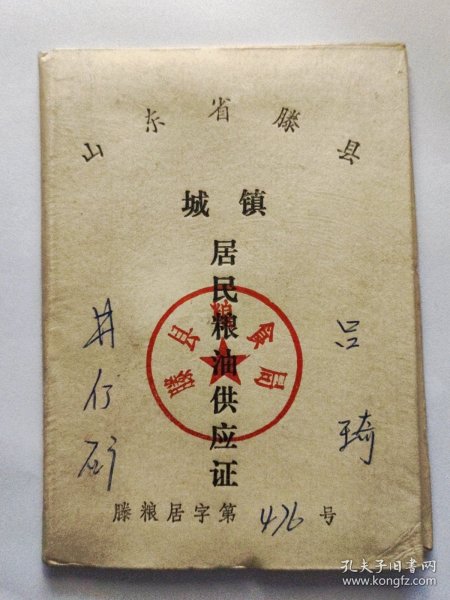 山东省滕县
城镇
居民粮油供应证
滕县粮食局
井仃矿
吕琦
滕粮居字第476号
孔夫子旧书网
www.kongfz.com